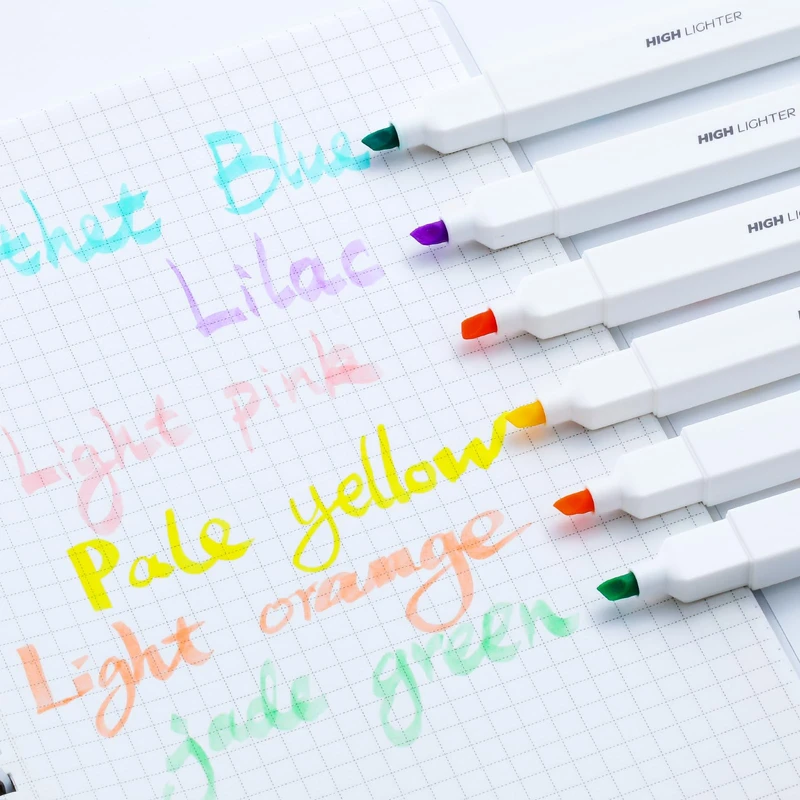 HIGH LIGHTER
HIGH LIGHTER
HIGH LIG
thet Blue
Lilac
Light pink
Pale yellow
Light orange
jade green